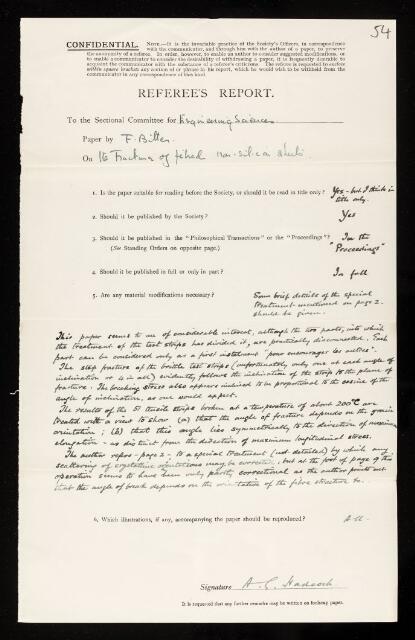 54
CONFIDENTIAL. NOTE.—It is the invariable practice of the Society's Officers, in correspondence
with the communicator, and through him with the author of a paper, to preserve
the anonymity of a referee. In order, however, to enable an author to consider suggested modifications, or
to enable a communicator to consider the desirability of withdrawing a paper, it is frequently desirable to
acquaint the communicator with the substance of a referee's criticisms. The referee is requested to enclose
within square brackets any portion of or phrase in his report, which he would wish to be withheld from the
communicator in any correspondence of this kind.
REFEREE'S REPORT.
To the Sectional Committee for Engineering Sciences
Paper by F. Bitter
On The Fracture of fibred non-silicon
1. Is the paper suitable for reading before the Society, or should it be read in title only? Yes - but I think in
title only.
2. Should it be published by the Society? Yes
3. Should it be published in the "Philosophical Transactions" or the "Proceedings"? In the
(See Standing Orders on opposite page.) "Proceedings"
4. Should it be published in full or only in part? In full
5. Are any material modifications necessary? Some brief details of the special
treatment mentioned on page 2.
should be given.
This paper seems to me of considerable interest, although the two parts, into which
the treatment of the test strips has divided it, are practically disconnected. Each
part can be considered only as a first instalment "pour encourager les autres".
The slip fracture of the brittle test strips (unfortunately only one at each angle of
inclination or 4 in all) evidently follows the inclination of the strip to the plane of
fracture. The breaking stress also appears inclined to be proportional to the cosine of the
angle of inclination, as one would expect.
The results of the 51 tensile strips broken at a temperature of about 200°C are
treated with a view to show (a) that the angle of fracture depends on the grain
orientation (b) that this angle lies symmetrically to the direction of maximum
elongation - as distinct from the direction of maximum longitudinal stress.
The author refers - page 2 - to a special treatment (not detailed) by which any
scattering of crystalline orientations may be corrected, but at the foot of page 9 this
operation seems to have been only partly correctional as the author points out
that the angle of break depends on the orientation of the fibre structure &c.
6. Which illustrations, if any, accompanying the paper should be reproduced? All
Signature A. C. Hadcock
It is requested that any further remarks may be written on foolscap paper.